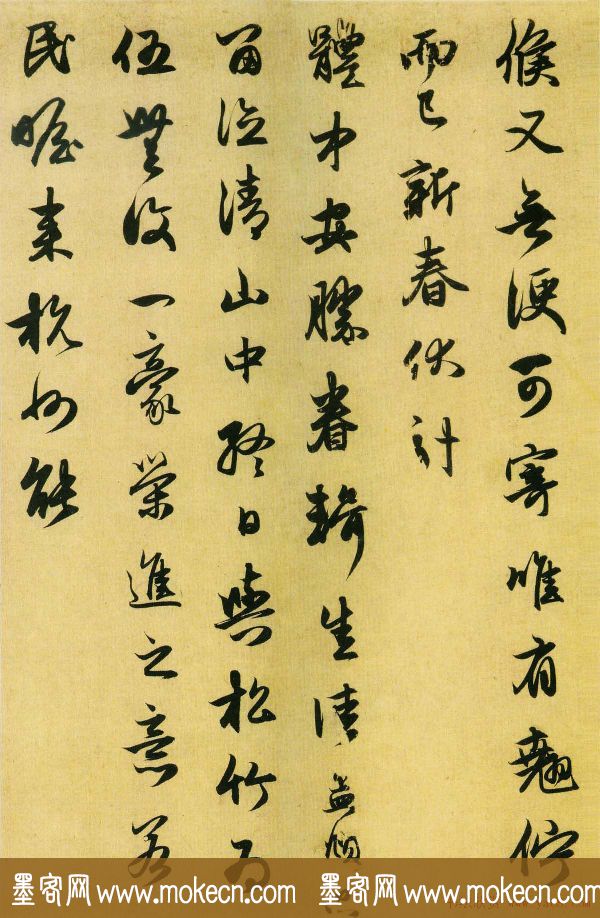 候又無便可寄唯有翹佇
而已新春伏計
體中安勝眷輯生清孟頫
留德清山中終日與松竹為
伍無復一豪榮進之意若
民瞻來杭州能
墨客网 www.mokecn.com 墨客网 www.mokecn.com